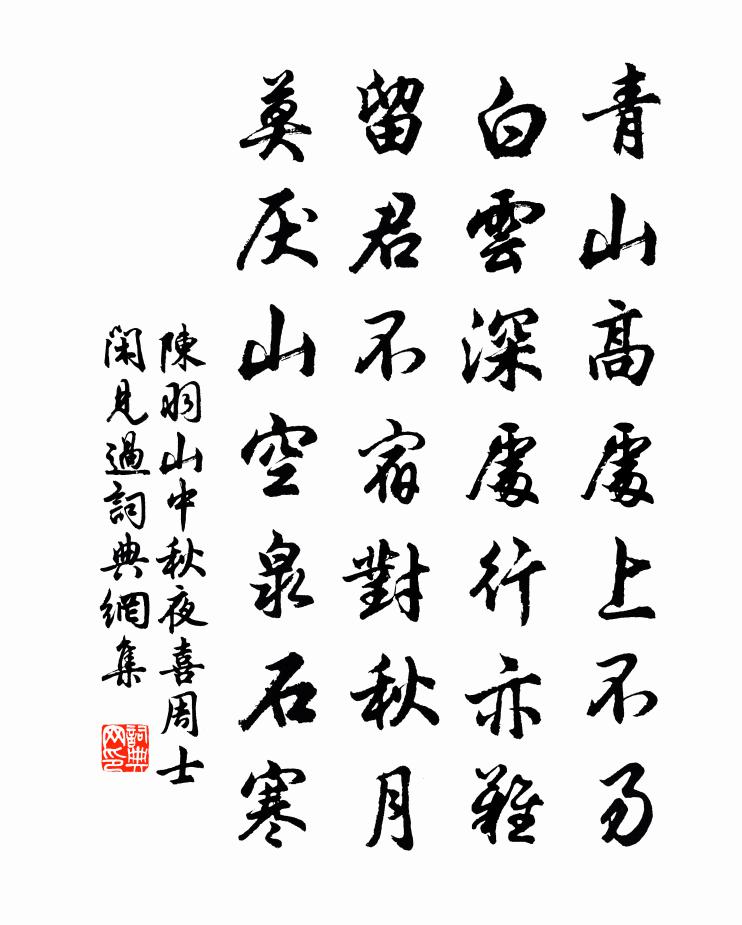 青山高處上不易
白雲深處行亦難
留君不宿對秋月
莫厌山空泉石寒
陳羽山中秋夜喜周士
閑見過詞典網集
詞典网印